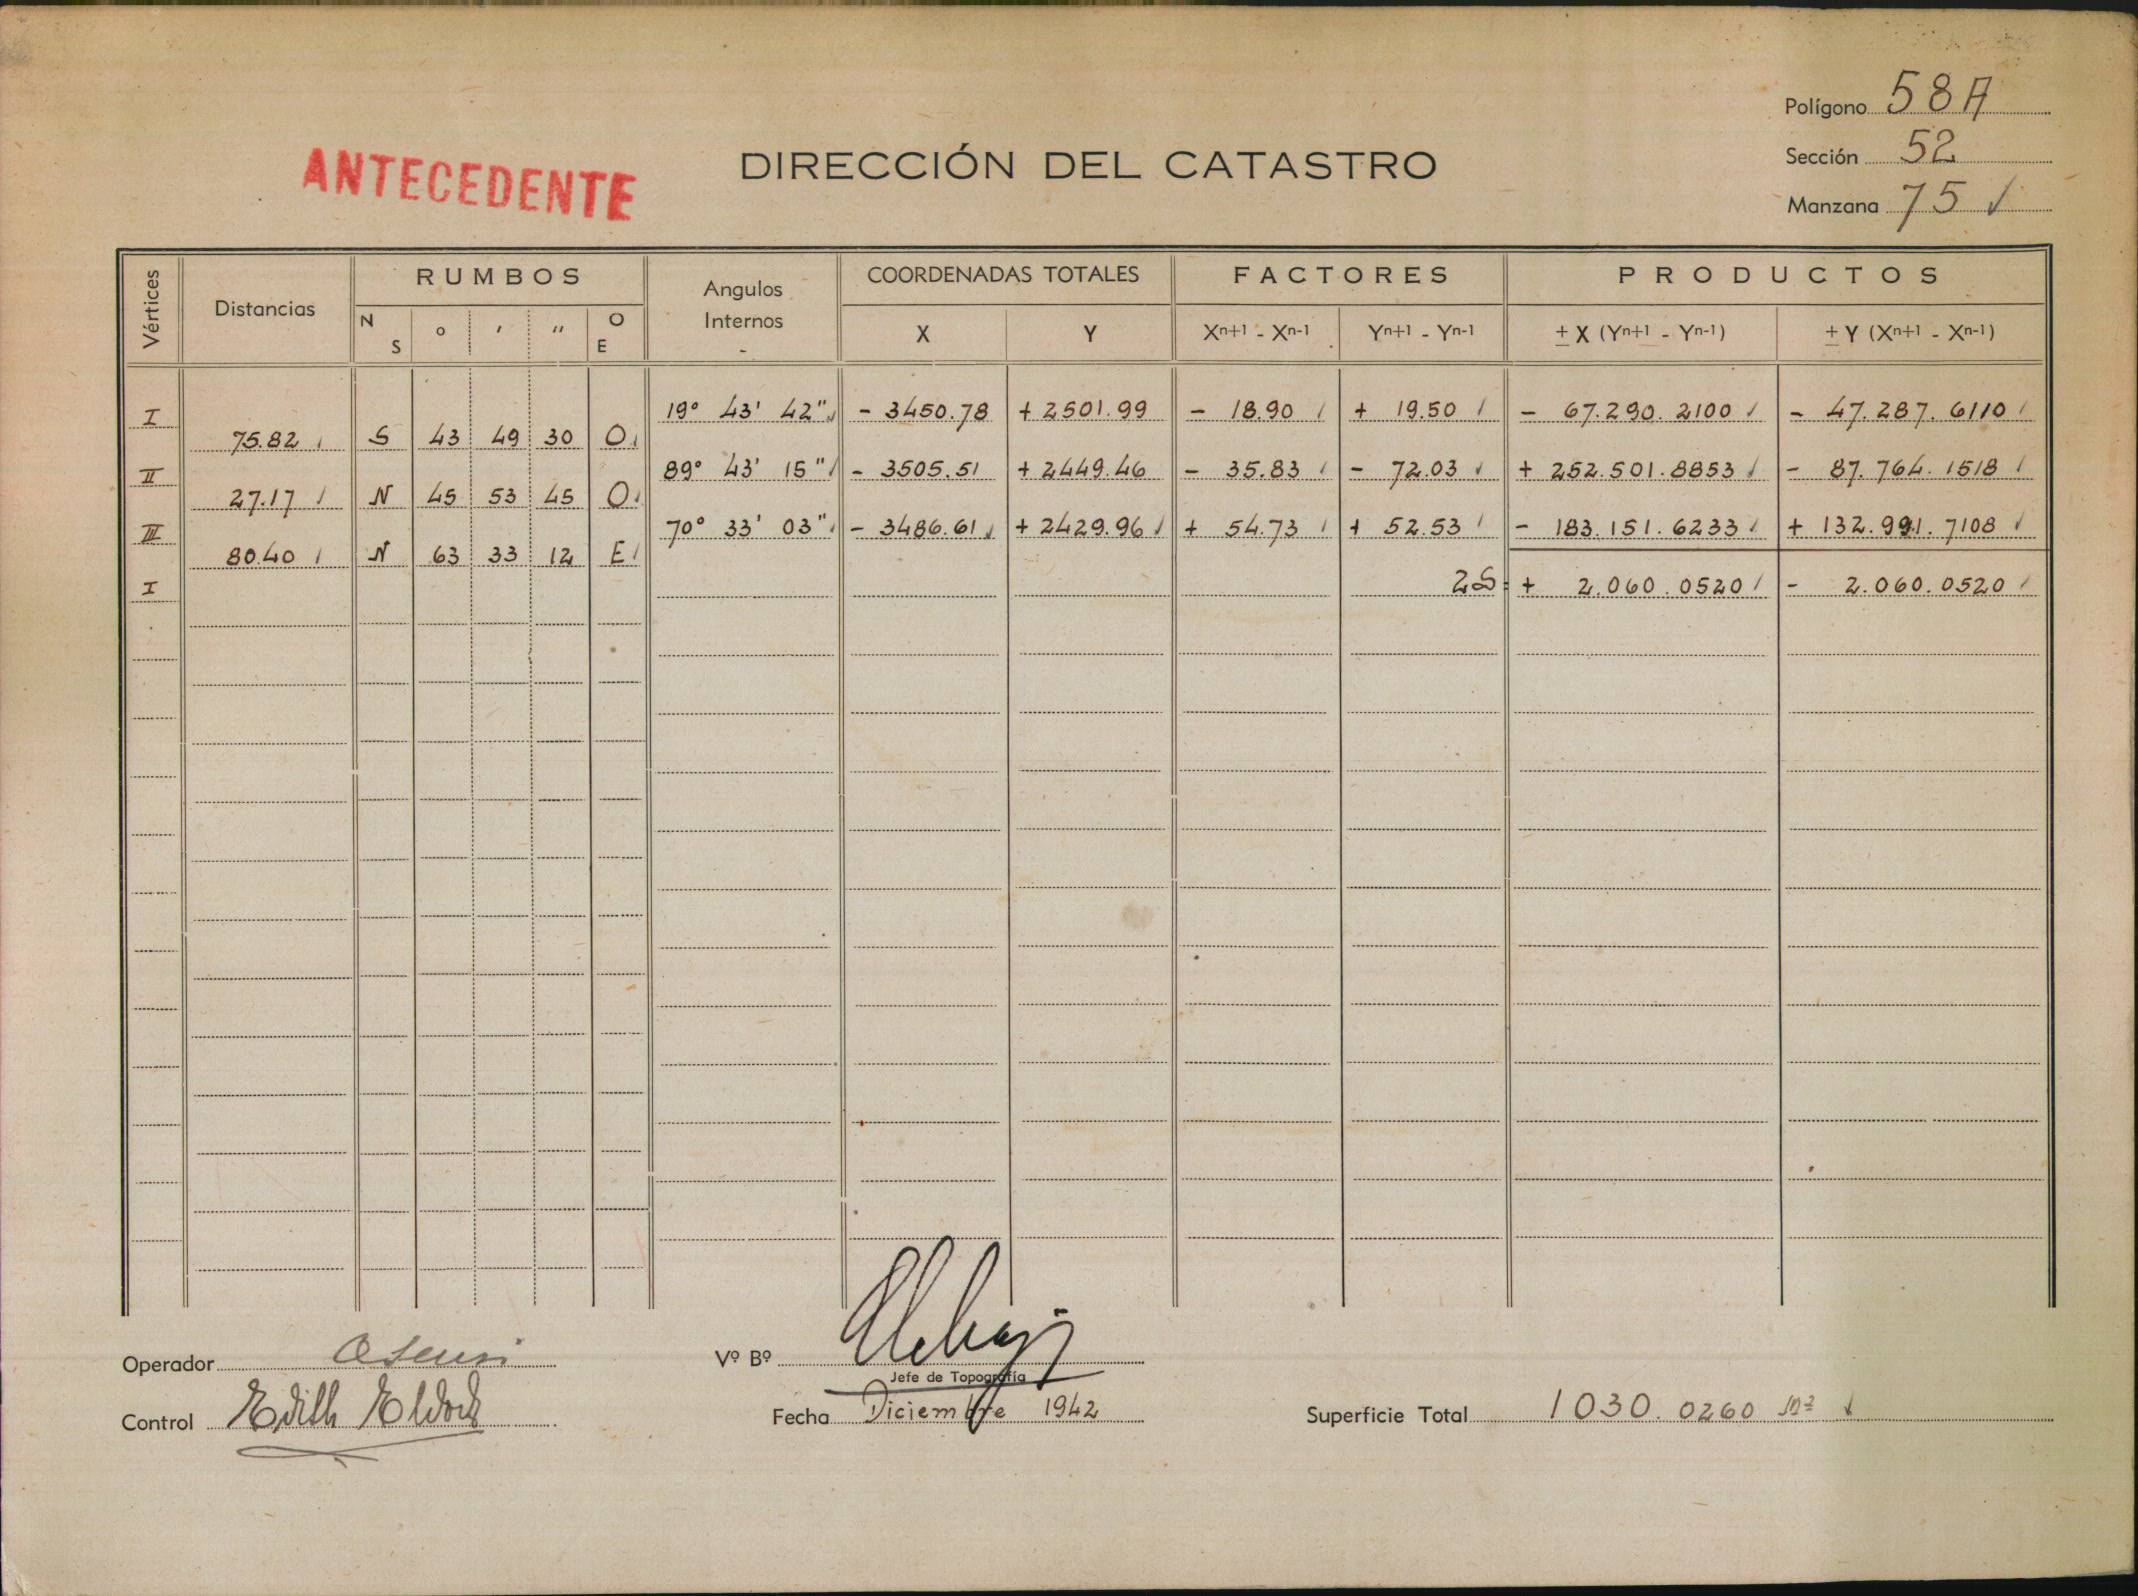 Polígono 58A
ANTECEDENTE
DIRECCIÓN DEL CATASTRO
Sección 52
Manzana 75 ✓
Vértices Distancias RUMBOS Angulos Internos COORDENADAS TOTALES FACTORES PRODUCTOS
N S ° ' " O E X Y Xn+1 - Xn-1 Yn+1 - Yn-1 ± X (Yn+1 - Yn-1) ± Y (Xn+1 - Xn-1)
I 19° 43' 42" - 3450.78 + 2501.99 - 18.90 + 19.50 - 67.290.2100 - 47.287.6110
75.82 S 43 49 30 O
II 89° 43' 15" - 3505.51 + 2449.46 - 35.83 - 72.03 + 252.501.8853 - 87.764.1518
27.17 N 45 53 45 O
III 70° 33' 03" - 3486.61 + 2429.96 + 54.73 + 52.53 - 183.151.6233 + 132.991.7108
80.40 N 63 33 12 E
I 2S = + 2.060.0520 - 2.060.0520
Operador
Vº Bº
Jefe de Topografía
Control Edith
Fecha Diciembre 1942
Superficie Total 1030.0260 m2 ✓